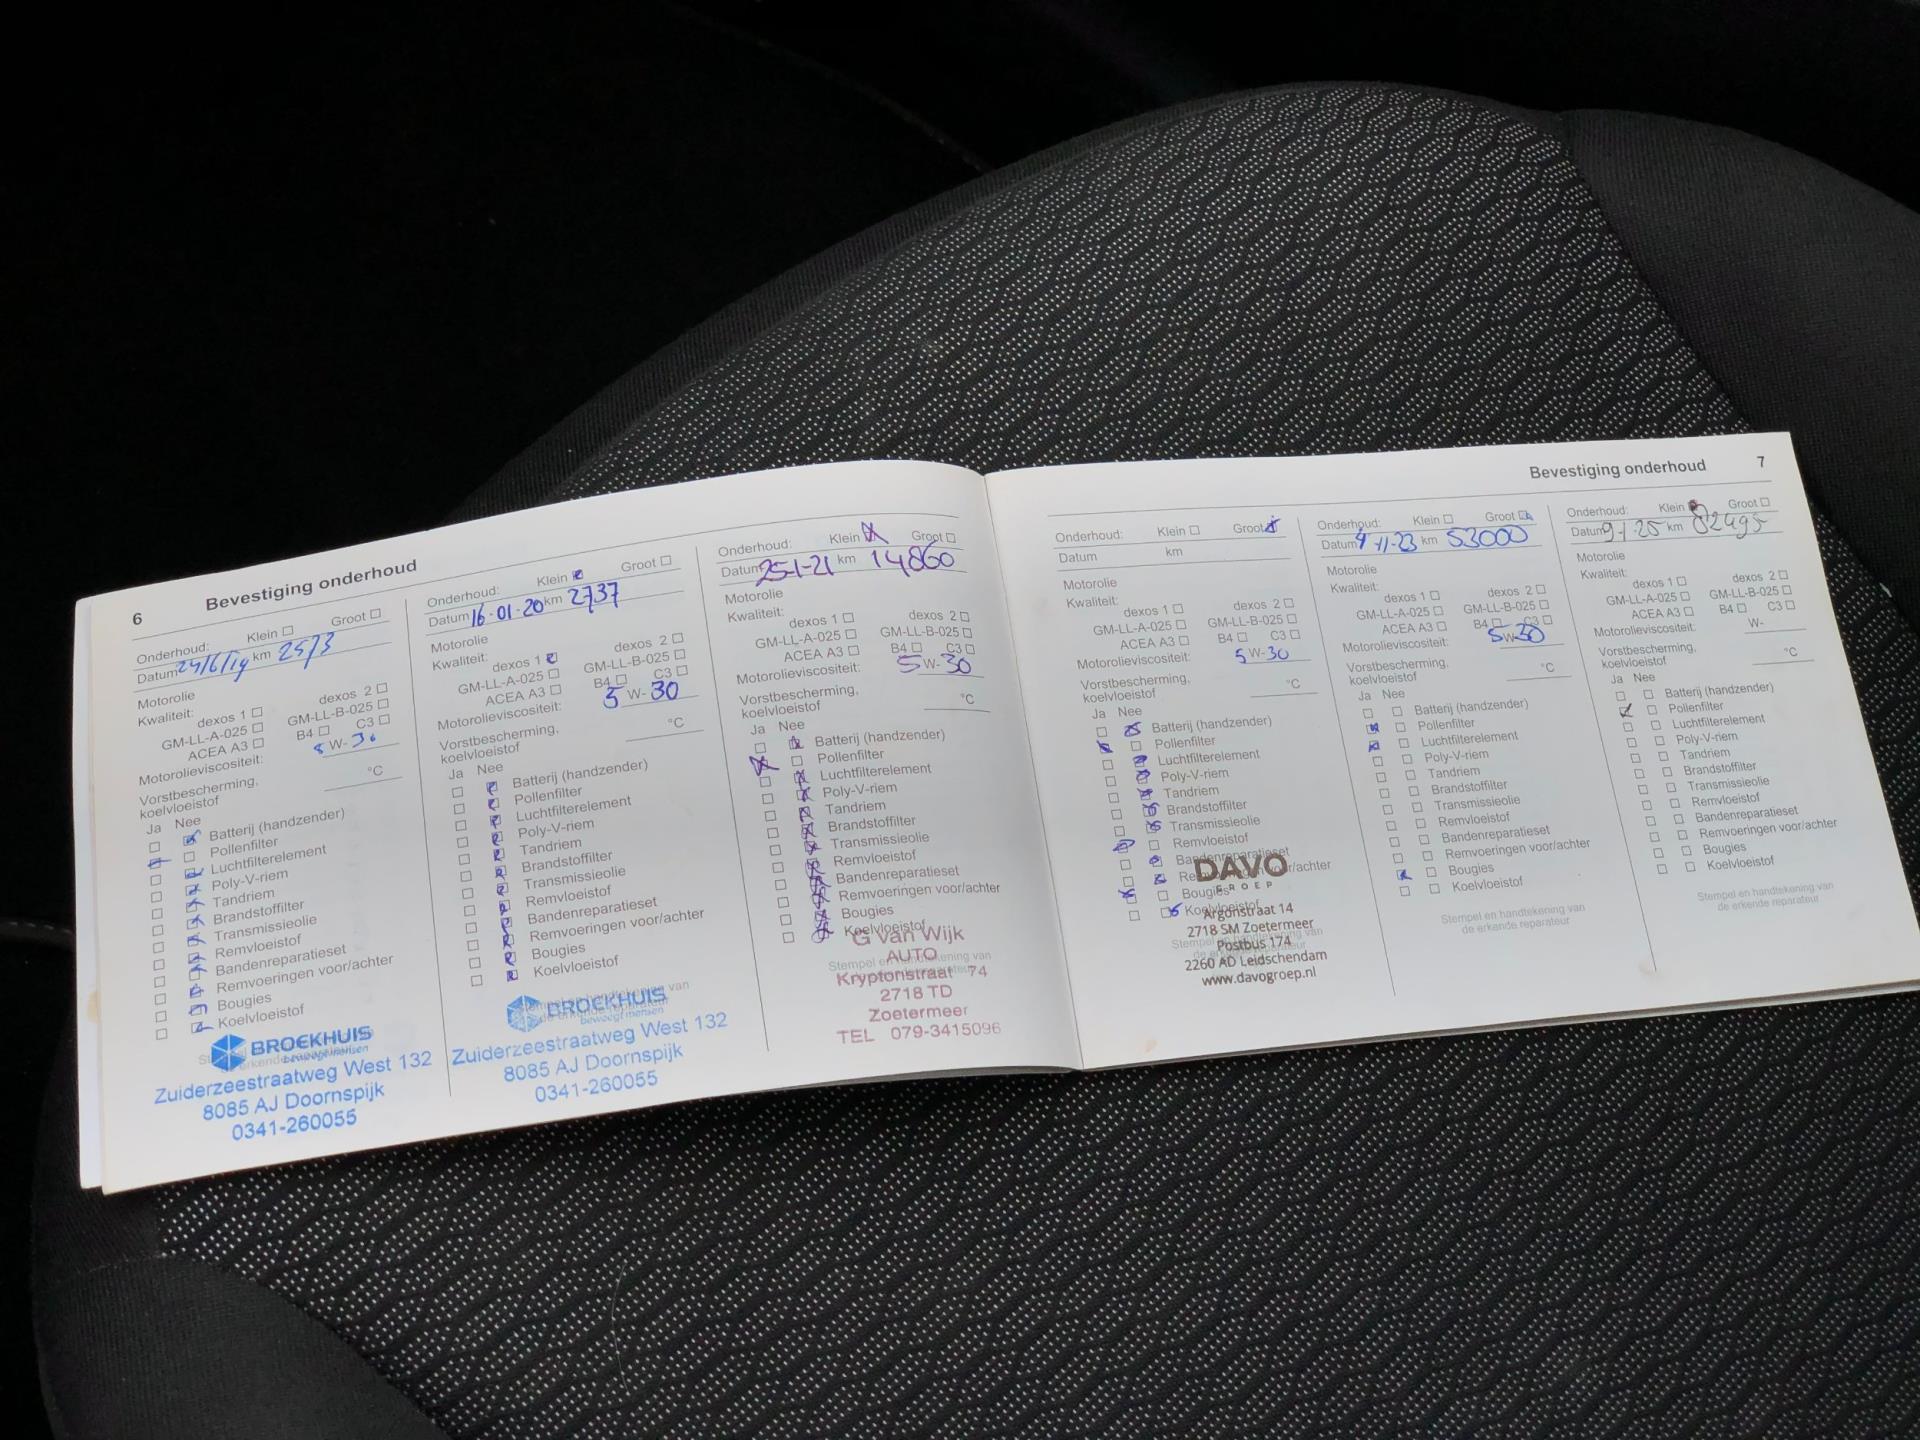 6 Bevestiging onderhoud
Onderhoud: Klein Groot
Datum 24/6/19 km 2573
Motorolie
Kwaliteit: dexos 1 dexos 2
GM-LL-A-025 GM-LL-B-025
ACEA A3 B4 C3
Motorolieviscositeit: 5 W- 30
Vorstbescherming,
koelvloeistof °C
Ja Nee
Batterij (handzender)
Pollenfilter
Luchtfilterelement
Poly-V-riem
Tandriem
Brandstoffilter
Transmissieolie
Remvloeistof
Bandenreparatieset
Remvoeringen voor/achter
Bougies
Koelvloeistof
BROEKHUIS
beweegt mensen
Zuiderzeestraatweg West 132
8085 AJ Doornspijk
0341-260055
Onderhoud: Klein Groot
Datum 16-01-20 km 2737
Motorolie
Kwaliteit: dexos 1 dexos 2
GM-LL-A-025 GM-LL-B-025
ACEA A3 B4 C3
Motorolieviscositeit: 5 W- 30
Vorstbescherming,
koelvloeistof °C
Ja Nee
Batterij (handzender)
Pollenfilter
Luchtfilterelement
Poly-V-riem
Tandriem
Brandstoffilter
Transmissieolie
Remvloeistof
Bandenreparatieset
Remvoeringen voor/achter
Bougies
Koelvloeistof
BROEKHUIS
beweegt mensen
Zuiderzeestraatweg West 132
8085 AJ Doornspijk
0341-260055
Onderhoud: Klein Groot
Datum 25-1-21 km 14860
Motorolie
Kwaliteit: dexos 1 dexos 2
GM-LL-A-025 GM-LL-B-025
ACEA A3 B4 C3
Motorolieviscositeit: 5 W- 30
Vorstbescherming,
koelvloeistof °C
Ja Nee
Batterij (handzender)
Pollenfilter
Luchtfilterelement
Poly-V-riem
Tandriem
Brandstoffilter
Transmissieolie
Remvloeistof
Bandenreparatieset
Remvoeringen voor/achter
Bougies
Koelvloeistof
G van Wijk
AUTO
Stempel en handtekening van
Kryptonstraat 74
2718 TD
Zoetermeer
TEL 079-3415096
Bevestiging onderhoud 7
Onderhoud: Klein Groot
Datum km
Motorolie
Kwaliteit: dexos 1 dexos 2
GM-LL-A-025 GM-LL-B-025
ACEA A3 B4 C3
Motorolieviscositeit: 5 W- 30
Vorstbescherming,
koelvloeistof °C
Ja Nee
Batterij (handzender)
Pollenfilter
Luchtfilterelement
Poly-V-riem
Tandriem
Brandstoffilter
Transmissieolie
Remvloeistof
Bandenreparatieset
Remvoeringen voor/achter
Bougies
Koelvloeistof
DAVO
GROEP
Argonstraat 14
2718 SM Zoetermeer
Stempel en handtekening van
Postbus 174
2260 AD Leidschendam
www.davogroep.nl
Onderhoud: Klein Groot
Datum 4-11-23 km 53000
Motorolie
Kwaliteit: dexos 1 dexos 2
GM-LL-A-025 GM-LL-B-025
ACEA A3 B4 C3
Motorolieviscositeit: 5 W- 30
Vorstbescherming,
koelvloeistof °C
Ja Nee
Batterij (handzender)
Pollenfilter
Luchtfilterelement
Poly-V-riem
Tandriem
Brandstoffilter
Transmissieolie
Remvloeistof
Bandenreparatieset
Remvoeringen voor/achter
Bougies
Koelvloeistof
Stempel en handtekening van
de erkende reparateur
Onderhoud: Klein Groot
Datum 9-1-25 km 82495
Motorolie
Kwaliteit: dexos 1 dexos 2
GM-LL-A-025 GM-LL-B-025
ACEA A3 B4 C3
Motorolieviscositeit: W-
Vorstbescherming,
koelvloeistof °C
Ja Nee
Batterij (handzender)
Pollenfilter
Luchtfilterelement
Poly-V-riem
Tandriem
Brandstoffilter
Transmissieolie
Remvloeistof
Bandenreparatieset
Remvoeringen voor/achter
Bougies
Koelvloeistof
Stempel en handtekening van
de erkende reparateur